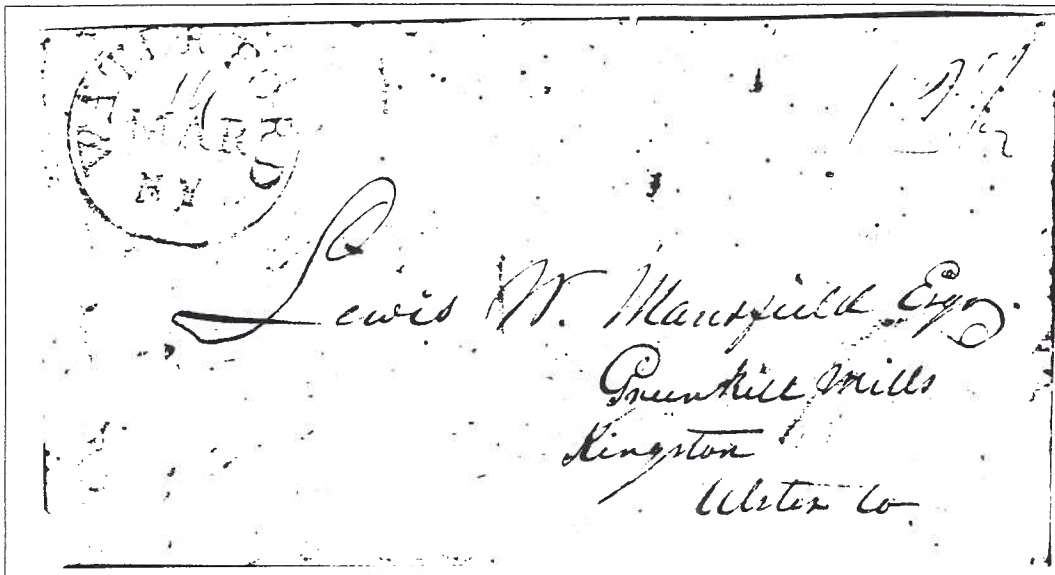 WATERFORD
11
MAR
N Y
12½
Lewis W. Mansfield Esq.
Greenkill Mills
Kingston
Ulster Co